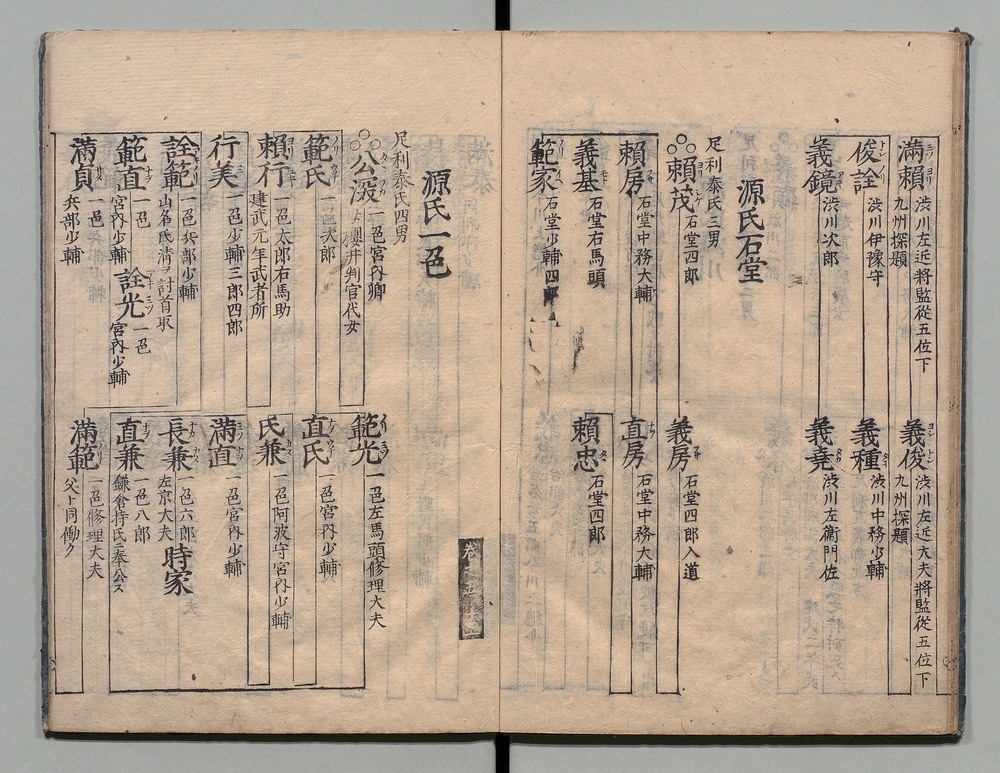 滿賴 渋川左近將監從五位下
九州探題
俊詮 渋川伊豫守
義鏡 渋川次郎
義俊 渋川左近大夫將監從五位下
九州探題
義種 渋川中務少輔
義堯 渋川左衞門佐
源氏石堂
足利泰氏三男
賴茂 石堂四郎
賴房 石堂中務大輔
義基 石堂右馬頭
範家 石堂少輔四郎
義房 石堂四郎入道
直房 石堂中務大輔
賴忠 石堂四郎
源氏一色
足利泰氏四男
公深 一色宮内卿
櫻井判官代女
範氏 一色次郎
賴行 一色太郎右馬助
建武元年武者所
行美 一色少輔三郎四郎
詮範 一色兵部少輔
山名氏清ヲ討首取
範直 一色
宮内少輔
詮光 一色
宮内少輔
滿貞 一色
兵部少輔
範光 一色左馬頭修理大夫
直氏 一色宮内少輔
氏兼 一色阿波守宮内少輔
滿直 一色宮内少輔
長兼 一色六郎
左京大夫
時家
直兼 一色八郎
鎌倉持氏ニ奉公ス
滿範 一色修理大夫
父ト同働ク